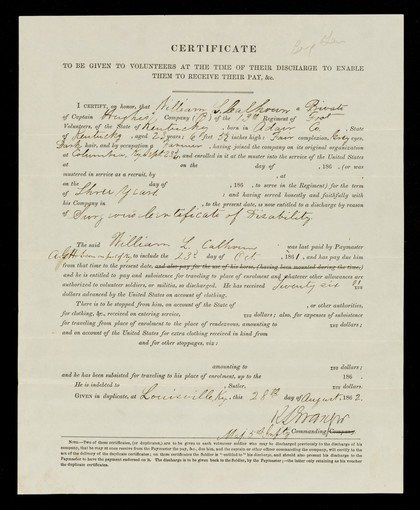 CERTIFICATE
TO BE GIVEN TO VOLUNTEERS AT THE TIME OF THEIR DISCHARGE TO ENABLE
THEM TO RECEIVE THEIR PAY, &c.
I CERTIFY, on honor, that William L. Calhoun a Private
of Captain Hughes, Company ( ) of the 13th Regiment of Foot
Volunteers, of the State of Kentucky, born in Adair Co, State
of Kentucky, aged years; 6 feet inches high; Fair complexion, eyes,
Dark hair, and by occupation a Farmer, having joined the company on its original organization
at Columbia, and enrolled in it at the muster into the service of the United States
at on the day of , 186 , (or was
mustered in service as a recruit, by , at ,
on the day of , 186 , to serve in the Regiment) for the term
of Three Years and having served honestly and faithfully with
his Company in , to the present date, is now entitled to a discharge by reason
of Surgeons Certificate of Disability
The said William L. Calhoun was last paid by Paymaster
to include the 23d day of Oct, 1861, and has pay due him
from that time to the present date, and also pay for the use of his horse, (having been mounted during the time,)
and he is entitled to pay and subsistence for traveling to place of enrolment and whatever other allowances are
authorized to volunteer soldiers, or militia, so discharged. He has received Twenty six
dollars advanced by the United States on account of clothing.
There is to be stopped from him, on account of the State of , or other authorities,
for clothing, &c., received on entering service, dollars; also, for expenses of subsistence
for traveling from place of enrolment to the place of rendezvous, amounting to dollars;
and on account of the United States for extra clothing received in kind from
and for other stoppages, via:
amounting to dollars;
and he has been subsisted for traveling to his place of enrolment, up to the 186 .
He is indebted to , Sutler, Dollars.
GIVEN in duplicate, at Louisville, Ky, this 28th day of August, 1862.
Commanding Company.
NOTE.—Two of these certificates, (or duplicates,) are to be given to each volunteer soldier who may be discharged previously to the discharge of his
company, that he may at once receive from the Paymaster the pay, &c., due him, and the captain or other officer commanding the company, will certify to the
act of the delivery of the duplicate certificates; on these certificates the Soldier is "entitled to" his discharge, and should also present his discharge to the
Paymaster to have the payment endorsed on it. The discharge is to be given back to the Soldier, by the Paymaster;—the latter only retaining as his voucher
the duplicate certificates.